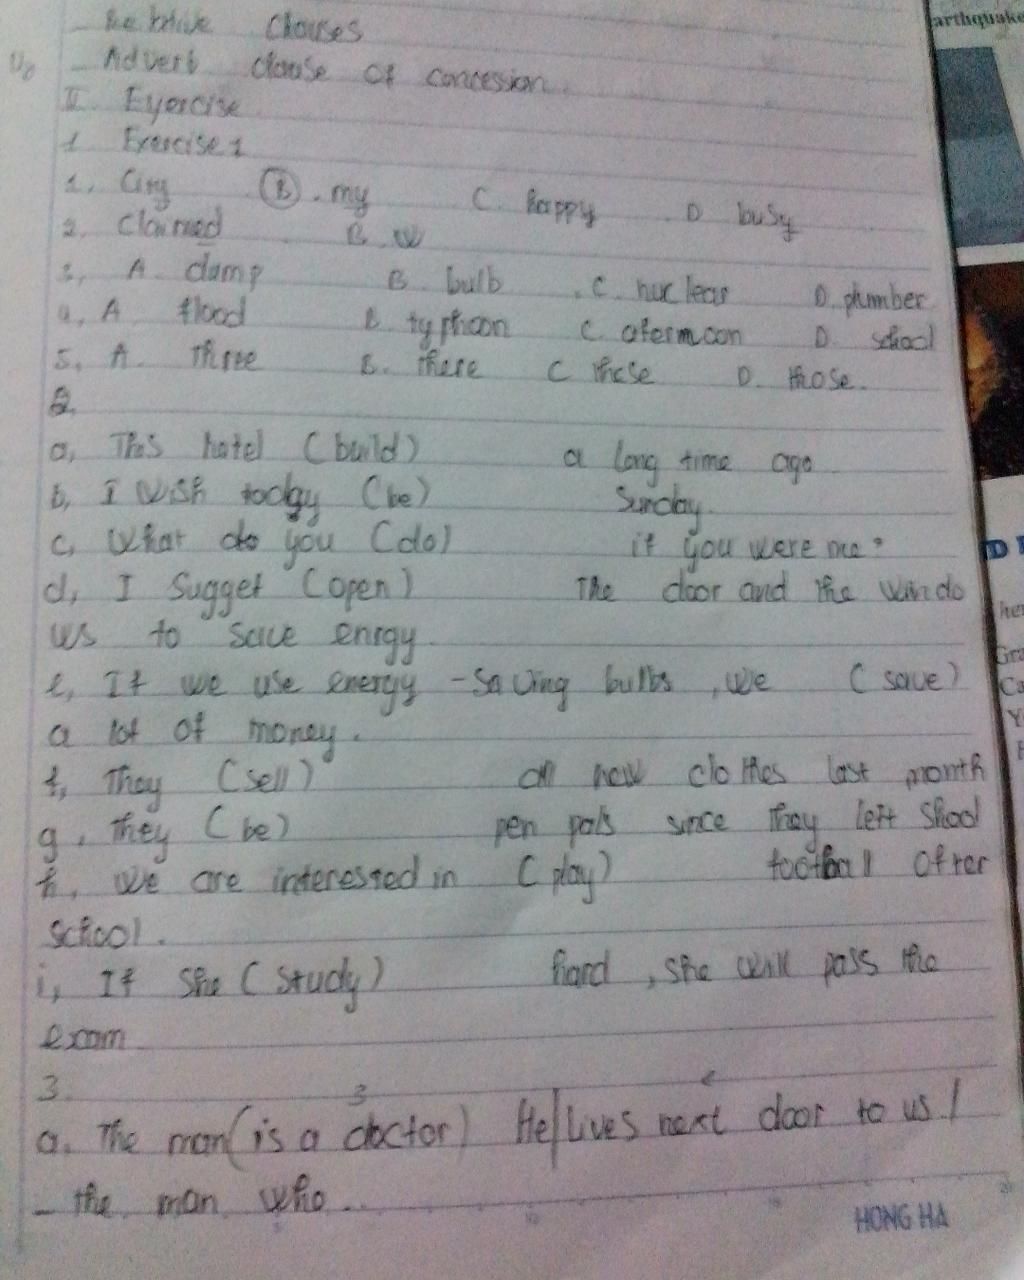 Relative Clauses
Adverb clause of concession.
II. Exercise
1 Exercise 1
1, City (B). my C. happy D busy
2. Claimed B. W
3, A. damp B. bulb C. nuclear D. plumber
4, A flood B. typhoon C. afternoon D. school
5, A. Three B. there C these D. those.
2,
a, This hotel (build) a long time ago
b, I wish today (be) Sunday.
c, What do you (do) if you were me?
d, I Sugget (open) The door and the windo
ws to save enrgy.
e, If we use energy - saving bulbs, we (save)
a lot of money.
f, They (sell) all new clothes last month
g, They (be) pen pals since they left Shool
h, We are interested in (play) football after
school.
i, If She (Study) hard, she will pass the
exam
3.
3
a. The man (is a doctor) He/lives next door to us /
- the man who...
HONG HA
arthquake